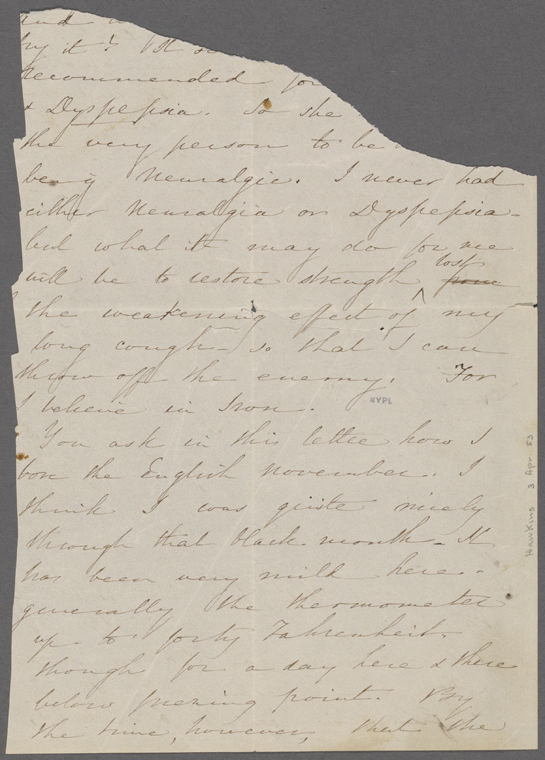 and
try it?
recommended for
& Dyspepsia. So she
the very person to be
being Neuralgic. I never had
either Neuralgia or Dyspepsia -
but what it may do for me
will be to restore strength lost from
the weakening effect of my
long cough - so that I can
throw off the enemy. For
I believe in Iron.
NYPL
You ask in this letter how I
bore the English november. I
think I was quite nicely
through that black month - It
has been very mild here -
generally the thermometer
up to forty Fahrenheit.
though for a day here & there
below freezing point. By
the time, however, that the
Hawkins 3 Apr 53